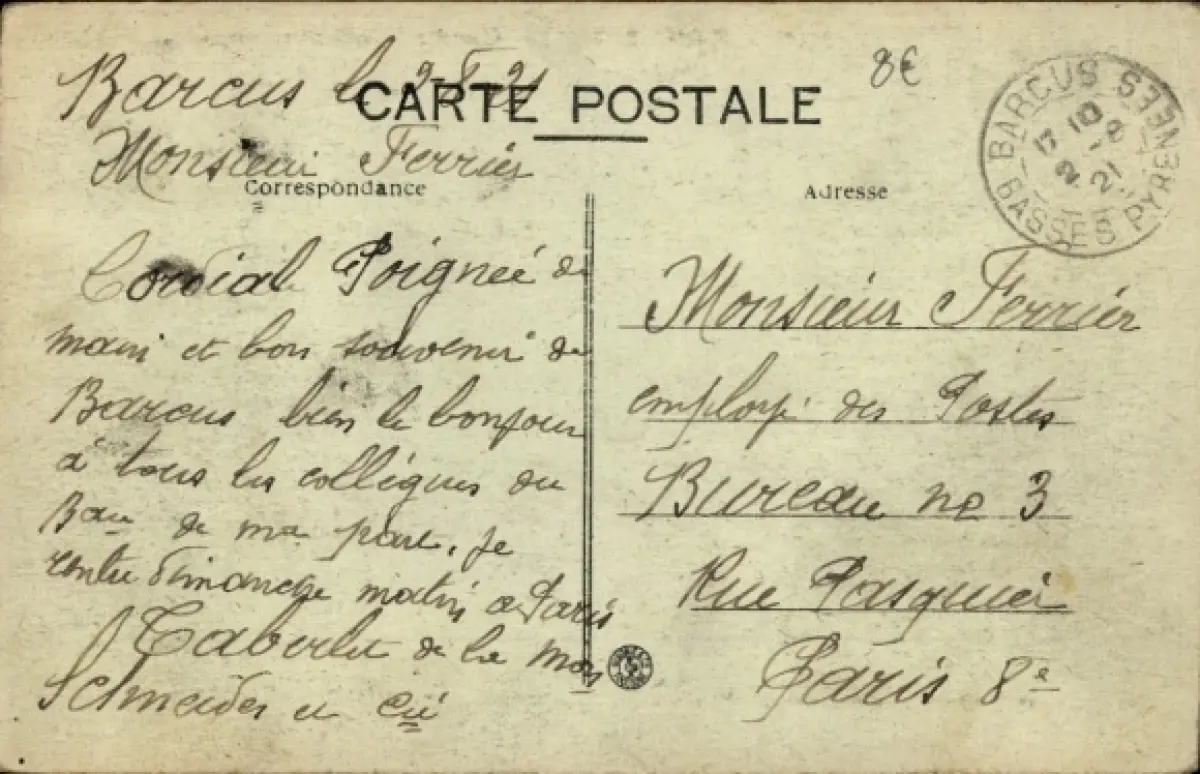 8€
Barcus le 2-8-21
CARTE POSTALE
Monsieur Ferrier
Correspondance
Cordial Poigneé de
main et bon souvenir de
Barcus bien le bonjour
à tous les collègues du
Bau de ma part. Je
rentre dimanche matin a Paris
de la Mon
Schneider et Cie
Adresse
Monsieur Ferrier
employé des Postes
Bureau no 3
Rue Pasquier
Paris 8e
BARCUS
BASSES PYRENEES
2 -8
21